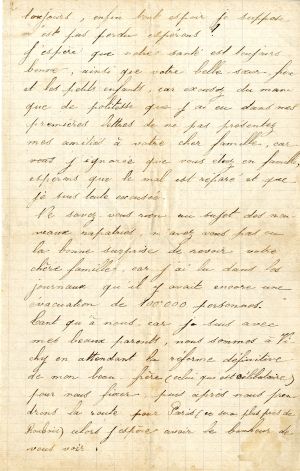 toujours, enfin tout espoir je suppose
n'est pas perdu espérons!
J'espère que votre santé est toujours
bonne, ainsi que votre belle sœur,
et les petits enfants, car excusez du man
que de politesse que j'ai eu dans mes
premières lettres de ne pas présenter
mes amitiés à votre cher famille, car
vous j'ignorée que vous étiez en famille,
espérons que le mal est réparé et que
je suis toute excusée.
Ne savez vous rien au sujet des nou
veaux rapatriés, n'avez vous pas eu
la bonne surprise de revoir votre
chère famille, car j'ai lu dans les
journaux qu'il y avait encore une
évacuation de 100.000 personnes.
Tant qu'à nous, car je suis avec
mes beaux parents, nous sommes à Vi
chy en attendant la réforme définitive
de mon beau frère (celui qui est célibataire)
pour nous fixer, puis après nous pren
drons la route pour Paris (ce sera plus près de
Roubaix) alors j'espère avoir le bonheur de
vous voir.